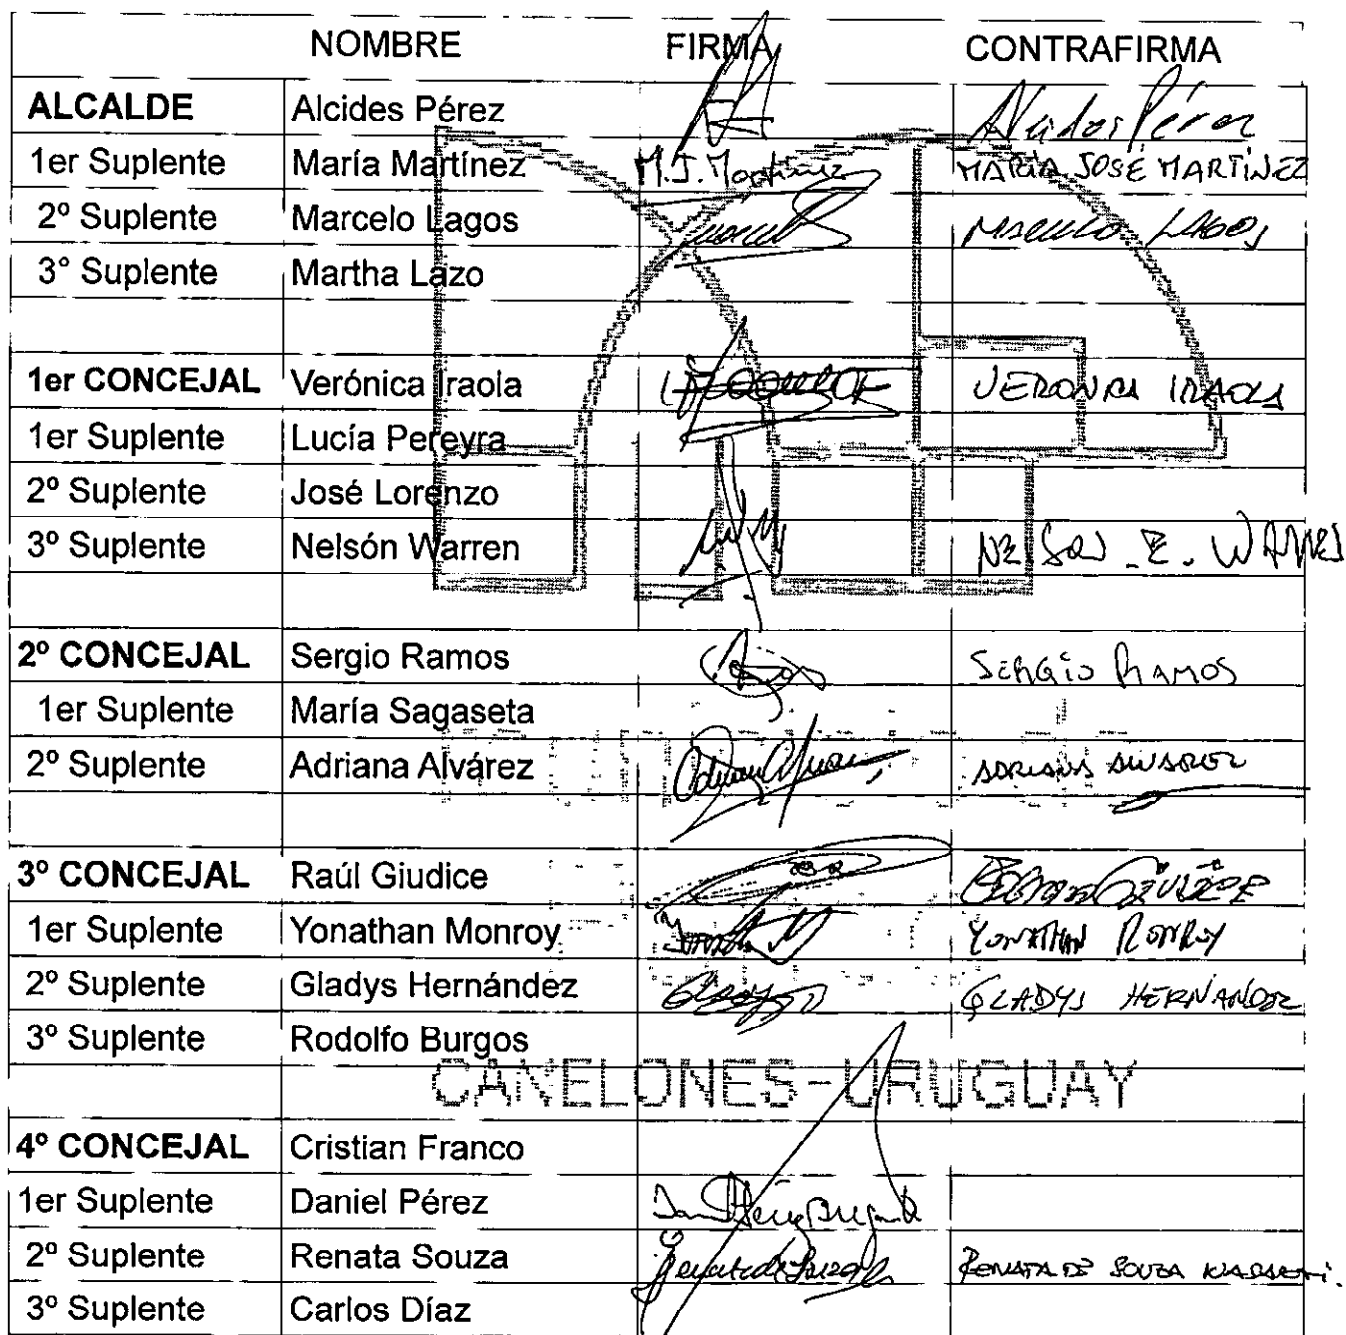 NOMBRE FIRMA CONTRAFIRMA
ALCALDE Alcides Pérez Alcides Pérez
1er Suplente María Martínez M.J. Martínez MARÍA JOSÉ MARTÍNEZ
2º Suplente Marcelo Lagos Marcelo LAGOS
3° Suplente Martha Lazo
1er CONCEJAL Verónica Iraola VERONICA IRAOLA
1er Suplente Lucía Pereyra
2º Suplente José Lorenzo
3º Suplente Nelsón Warren NELSON E. WARREN
2º CONCEJAL Sergio Ramos SERGIO RAMOS
1er Suplente María Sagaseta
2º Suplente Adriana Alvárez ADRIANA ALVAREZ
3º CONCEJAL Raúl Giudice GIUDICE
1er Suplente Yonathan Monroy YONATHAN MONROY
2º Suplente Gladys Hernández GLADYS HERNANDEZ
3º Suplente Rodolfo Burgos
CANELONES-URUGUAY
4º CONCEJAL Cristian Franco
1er Suplente Daniel Pérez
2º Suplente Renata Souza RENATA DE SOUZA
3º Suplente Carlos Díaz